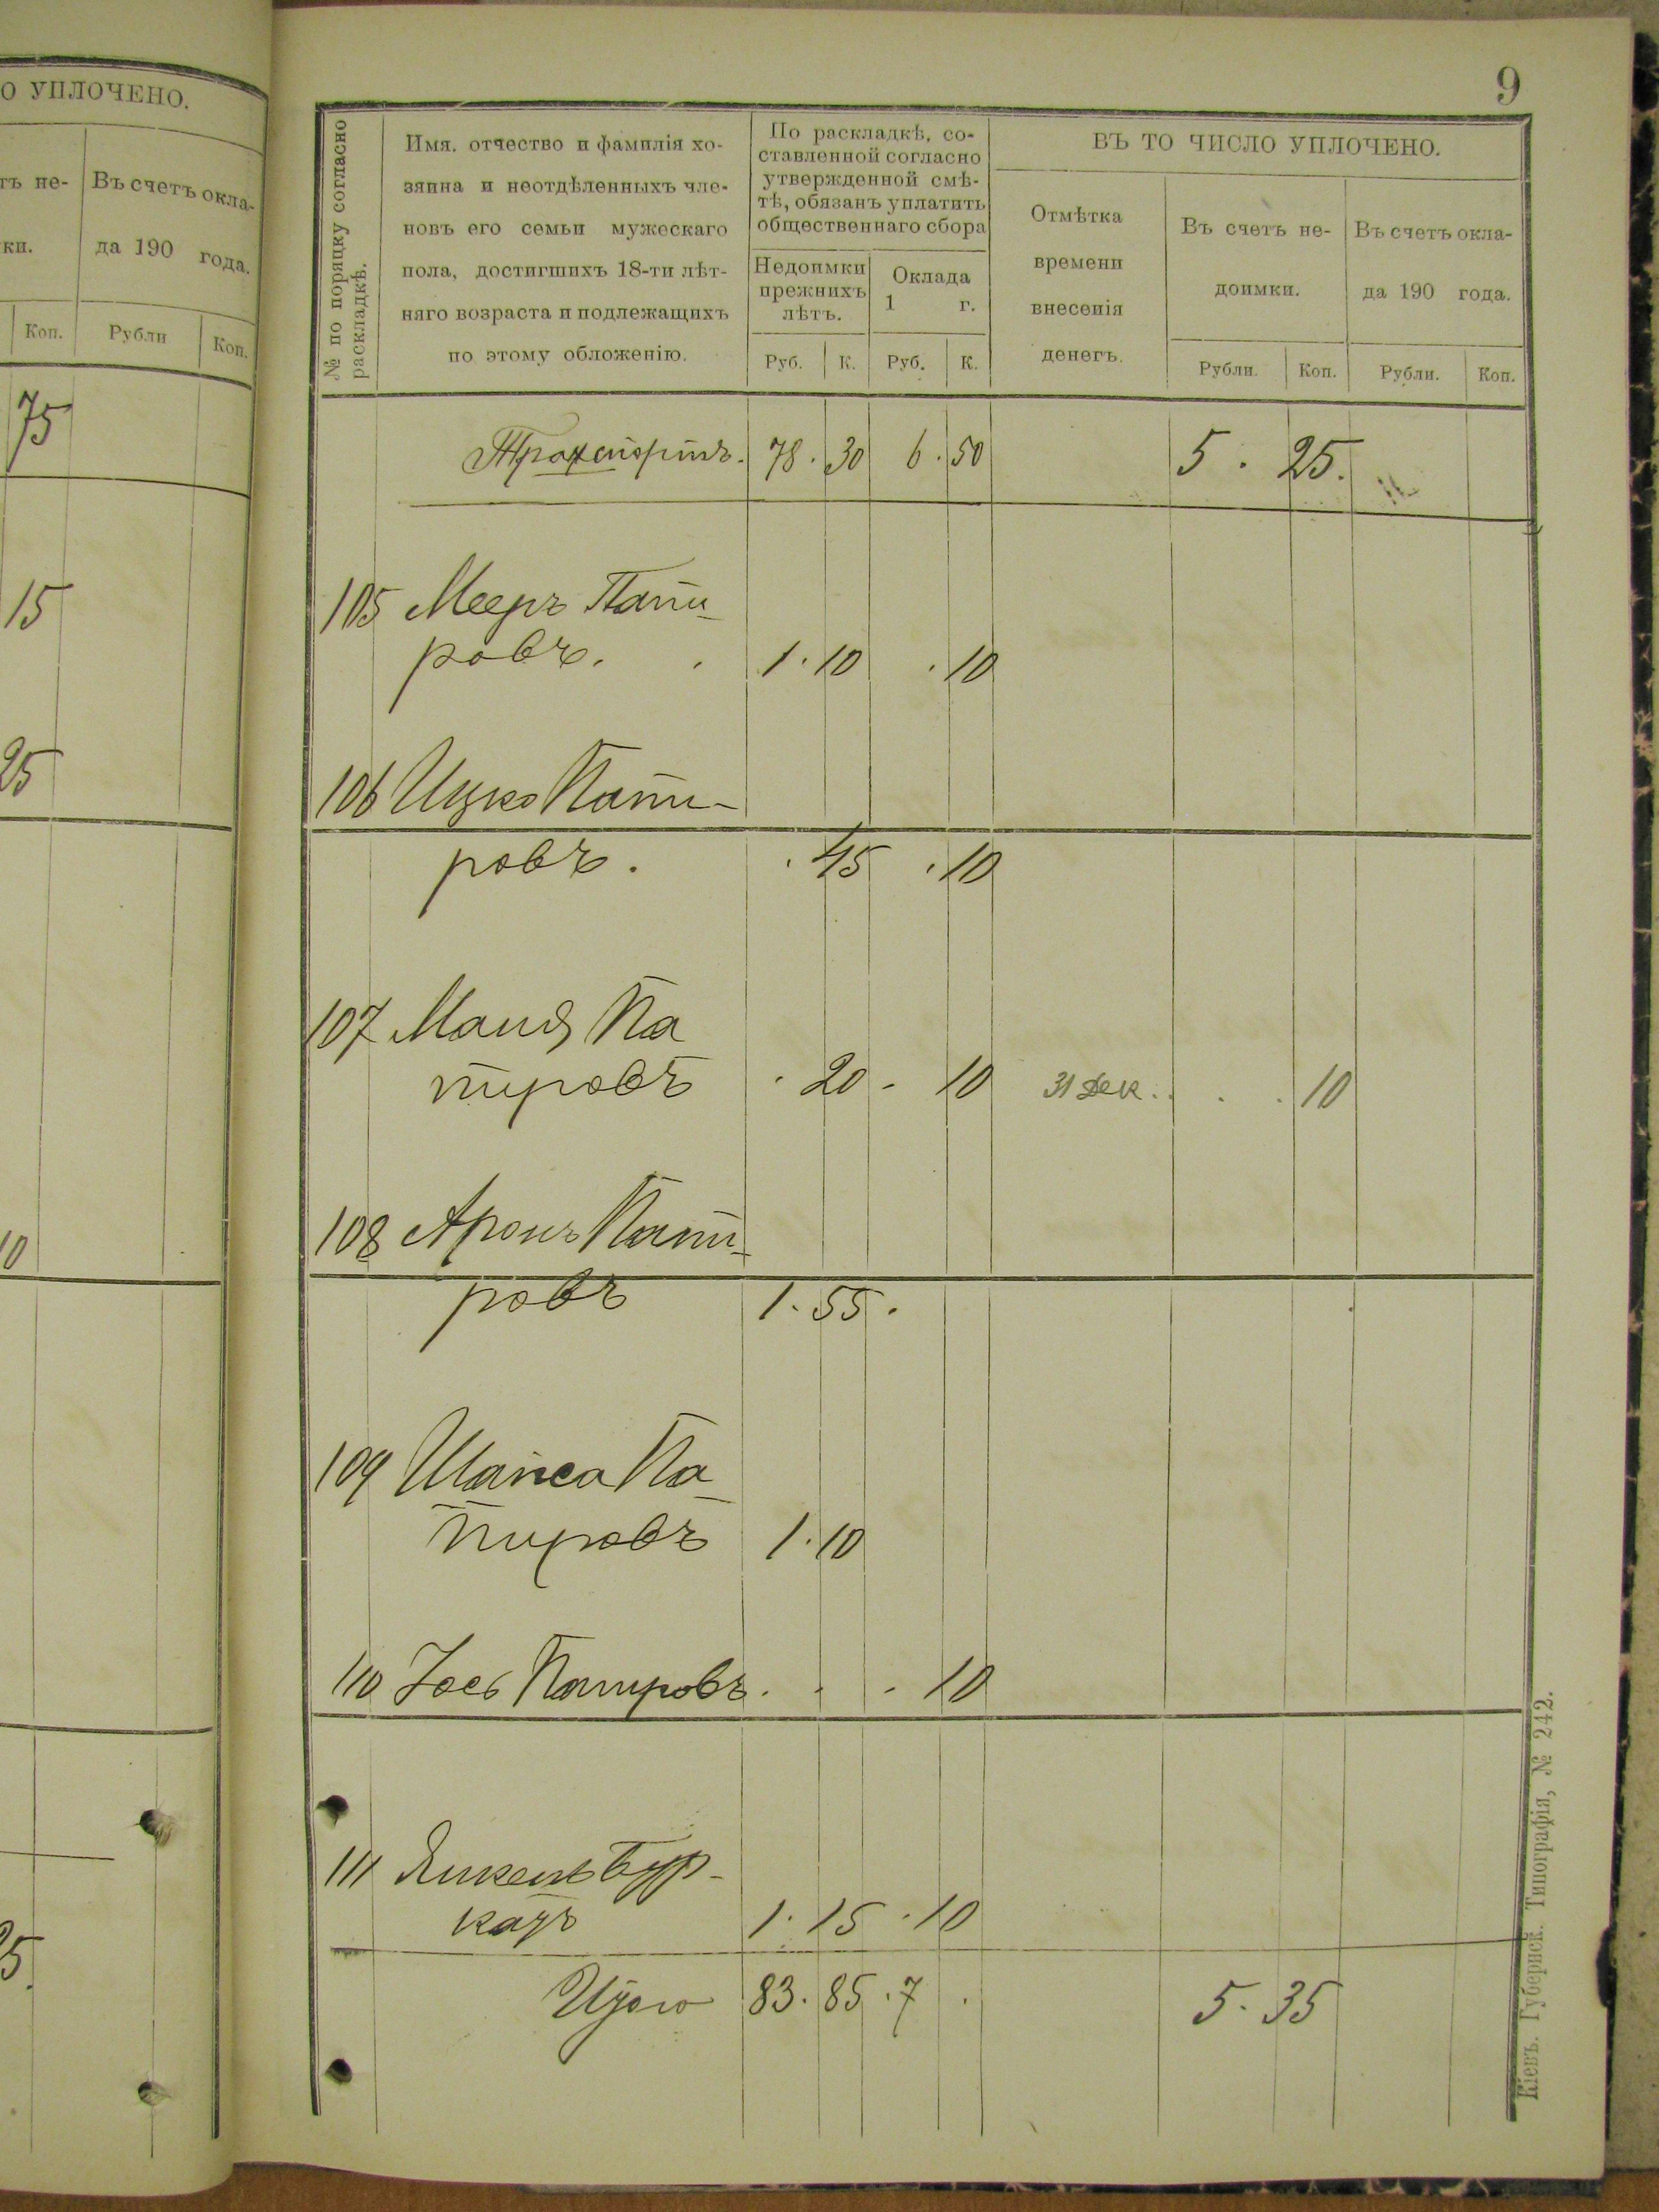 О УПЛОЧЕНО.
Въ счетъ окла-
да 190 года.
ки.
Коп.
Рубли
Коп.
75
15
25
10
9
№ по порядку согласно
раскладкѣ.
Имя, отчество и фамилія хо-
зяина и неотдѣленныхъ чле-
новъ его семьи мужескаго
пола, достигшихъ 18-ти лѣт-
няго возраста и подлежащихъ
по этому обложенію.
По раскладкѣ, со-
ставленной согласно
утвержденной смѣ-
тѣ, обязанъ уплатить
общественнаго сбора
Недоимки
прежнихъ
лѣтъ.
Оклада
1 г.
Руб. К. Руб. К.
ВЪ ТО ЧИСЛО УПЛОЧЕНО.
Отмѣтка
времени
внесенія
денегъ.
Въ счетъ не-
доимки.
Въ счетъ окла-
да 190 года.
Рубли. Коп. Рубли. Коп.
Транспортъ. 78. 30 6. 50 5. 25.
105 Мееръ Папи-
ровъ. 1. 10 . 10
106 Ицко Папи-
ровъ. . 45 . 10
107 Па
пировъ . 20 - 10 31 Дек. . . 10
108 Аронъ Папи-
ровъ 1. 55.
109 Па-
пировъ 1. 10
110 Іось Папировъ . . . 10
111 Янкель Бур-
кацъ 1. 15 . 10
Итого 83. 85. 7 . 5. 35
Кіевъ. Губернск. Типографія, № 242.